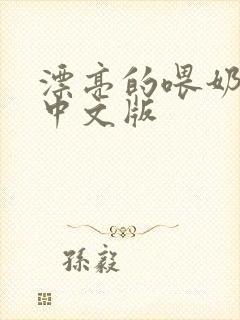 漂亮的喂奶
中文版
孫毅